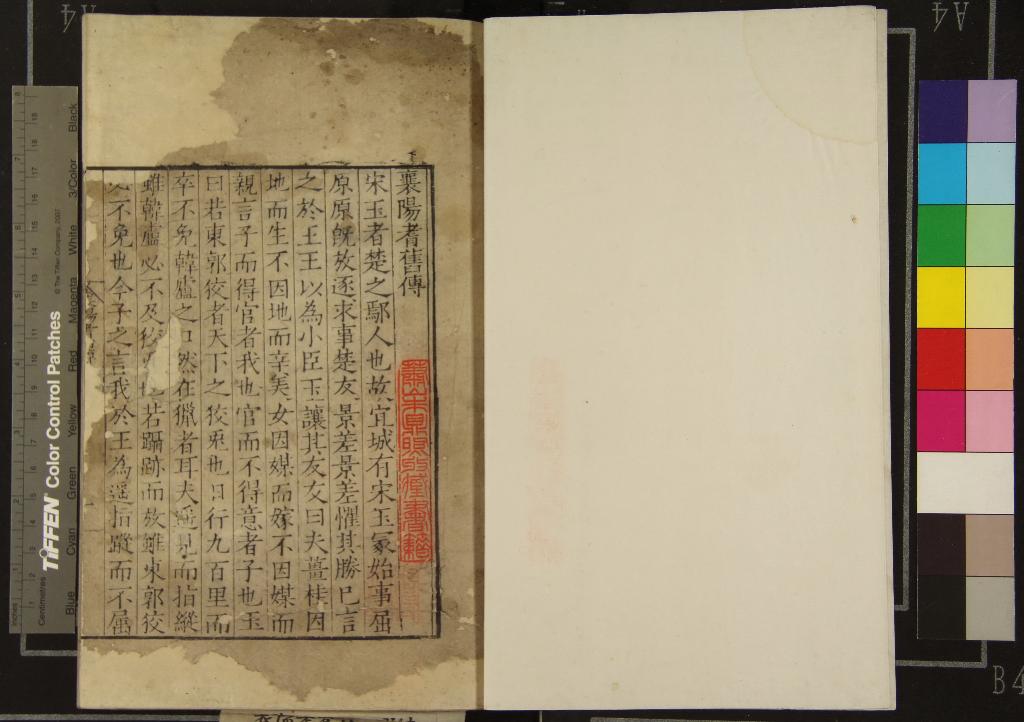 襄陽耆舊傳
宋玉者楚之鄢人也故宜城有宋玉冢始事屈
原原既放逐求事楚友景差景差懼其勝已言
之於王王以為小臣玉讓其友友曰夫薑桂因
地而生不因地而辛美女因媒而嫁不因媒而
親言子而得官者我也官而不得意者子也玉
曰若東郭㕙者天下之㕙兎也日行九百里而
卒不免韓盧之口然在獵者耳夫遥見而指縱
雖韓盧必不及㕙也若躡跡而放雖東郭㕙
必不免也今子之言我於王為遥指蹤而不属
TIFFEN Color Control Patches
© The Tiffen Company, 2007
Inches
Centimetres
Blue
Cyan
Green
Yellow
Red
Magenta
White
3/Color
Black
A4
A4
B4